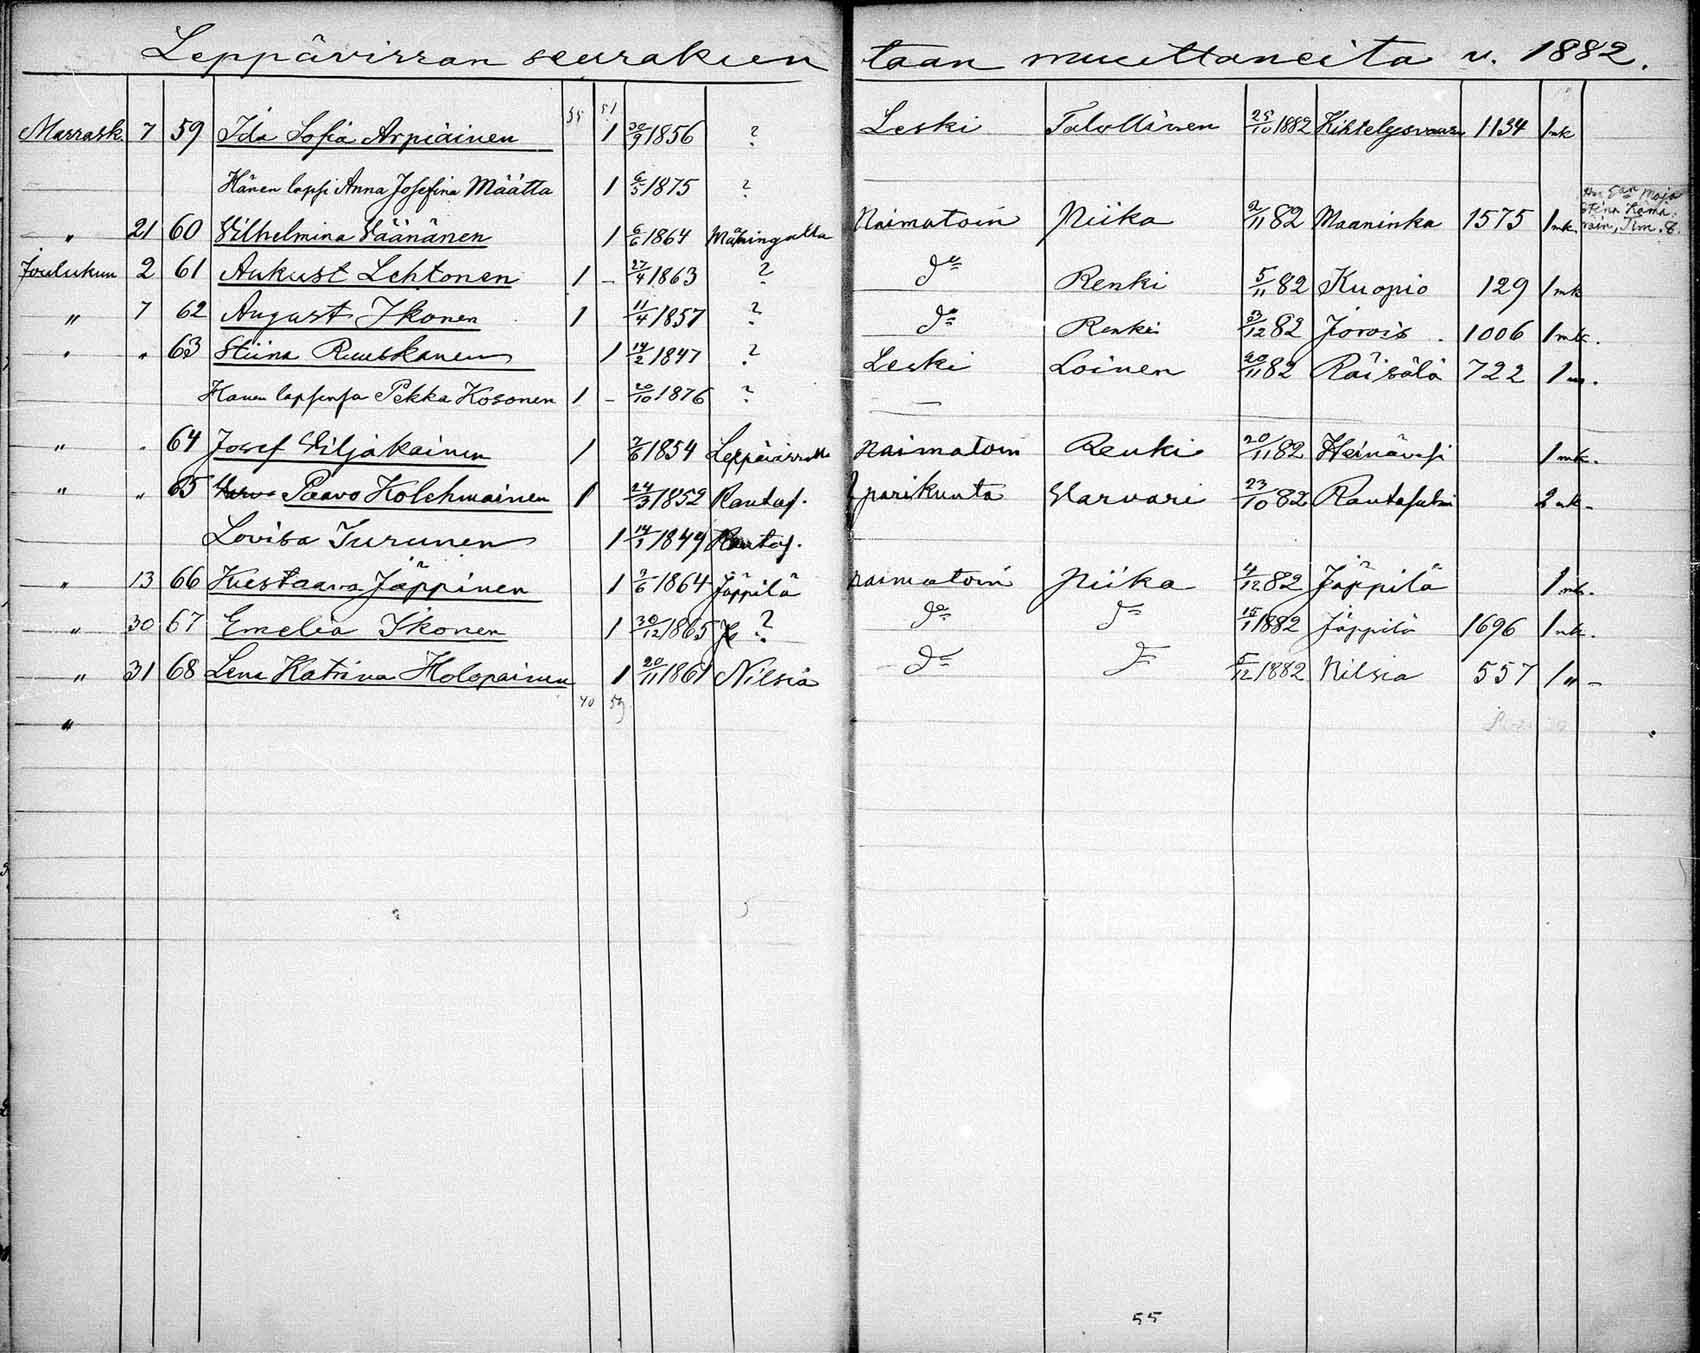 Leppävirran seurakun taan muuttaneita v. 1882.
35 51
Marrask. 7 59 Ida Sofia Arpiainen 1 30/9 1856 ? Leski Talollinen 25/10 1882 Kihtelysvaara 1134 1 mk
Hänen lapsi Anna Josefina Määttä 1 6/3 1875 ?
" 21 60 Vilhelmina Väänänen 1 6/6 1864 Naimatoin Piika 2/11 82 Maaninka 1575 1 mk.
Joulukun 2 61 Aukust Lehtonen 1 – 27/4 1863 ? do Renki 5/11 82 Kuopio 129 1 mk
" 7 62 August Ikonen 1 11/4 1857 ? do Renki 3/12 82 Jorois 1006 1 mk.
" " 63 Stiina Ruuskanen 1 14/2 1847 ? Leski Loinen 20/11 82 Räisälä 722 1 m.
Hänen lapsensa Pekka Kosonen 1 – 20/10 1876 ?
" " 64 Josef Viljakainen 1 2/6 1854 Leppävirralla Naimatoin Renki 20/11 82 Heinävesi 1 mk.
" " 65 Paavo Kolehmainen 1 24/3 1852 Rautas. pariskunta Varvari 23/10 82 Rautasalmi 2 mk.
Lovisa Turunen 1 14/1 1849 Rautas.
" 13 66 Kustaava Jäppinen 1 2/6 1864 Jäppilä naimatoin Piika 4/12 82 Jäppilä 1 mk.
" 30 67 Emelia Ikonen 1 30/12 1865 ? do do 15/1 1882 Jäppilä 1696 1 mk.
" 31 68 Lena Katrina Holopainen 1 20/11 1861 Nilsiä do do 5/12 1882 Nilsia 557 1 " –
40 59
"
55